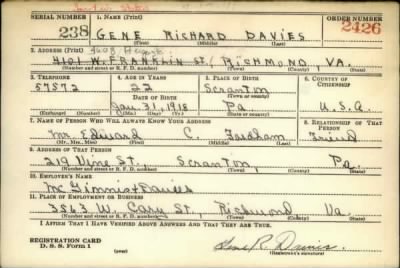 SERIAL NUMBER 1. NAME (Print) ORDER NUMBER
238 GENE RICHARD DAVIES 2426
(First) (Middle) (Last)
2. ADDRESS (Print)
4101 W. FRANKLIN ST., RICHMOND, VA.
(Number and street or R. F. D. number) (Town) (County) (State)
3. TELEPHONE 4. AGE IN YEARS 5. PLACE OF BIRTH 6. COUNTRY OF CITIZENSHIP
57572 22 Scranton
DATE OF BIRTH (Town or county)
Jan. 31, 1918 Pa U.S.A.
(Exchange) (Number) (Mo.) (Day) (Yr.) (State or country)
7. NAME OF PERSON WHO WILL ALWAYS KNOW YOUR ADDRESS 8. RELATIONSHIP OF THAT PERSON
Mr. Edward C. Friend
(Mr., Mrs., Miss) (First) (Middle) (Last)
9. ADDRESS OF THAT PERSON
219 Vine St. Scranton, Pa.
(Number and street or R. F. D. number) (Town) (County) (State)
10. EMPLOYER'S NAME
McGinnis & Davies
11. PLACE OF EMPLOYMENT OR BUSINESS
3563 W. Cary St., Richmond Va.
(Number and street or R. F. D. number) (Town) (County) (State)
I AFFIRM THAT I HAVE VERIFIED ABOVE ANSWERS AND THAT THEY ARE TRUE.
REGISTRATION CARD
D. S. S. Form 1 Gene R. Davies
(over) (Registrant's signature)